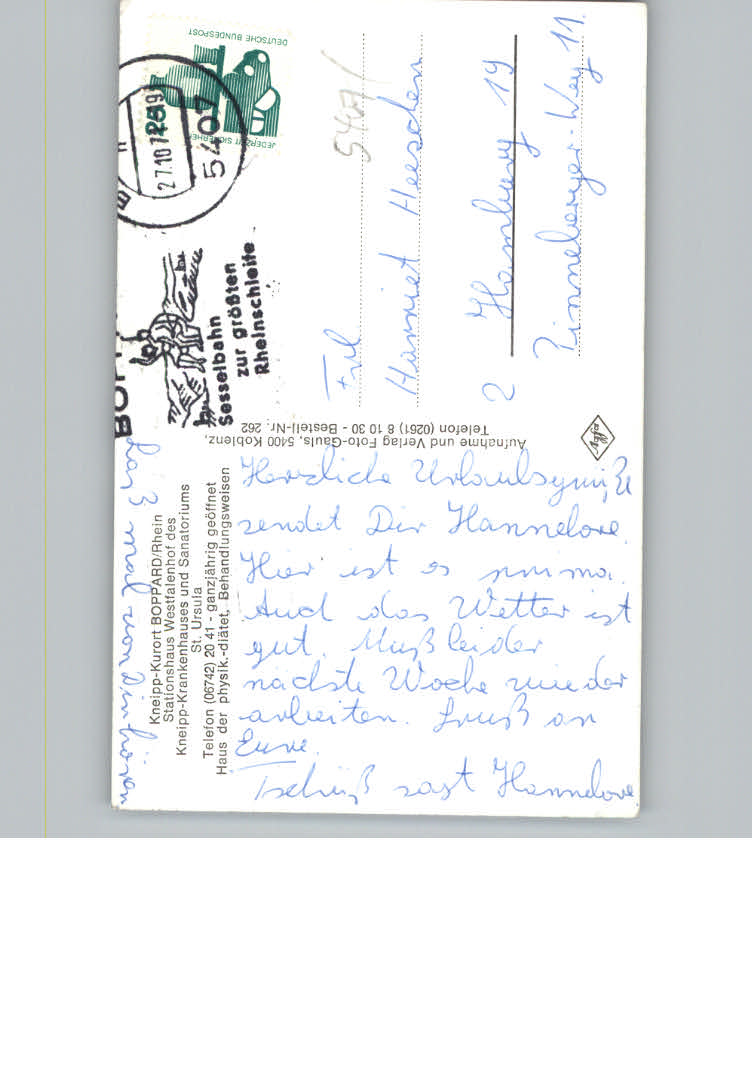 Kneipp-Kurort BOPPARD/Rhein
Stationshaus Westfalenhof des
Kneipp-Krankenhauses und Sanatoriums
St. Ursula
Telefon (06742) 20 41 - ganzjährig geöffnet
Haus der physik.-diätet. Behandlungsweisen
Herzliche Urlaubsgrüße
sendet Dir Hannelore.
Hier ist es prima.
Auch das Wetter ist
gut. Muß leider
nächste Woche wieder
arbeiten. Gruß an
Eure.
Tschüß sagt Hannelore
Laß mal von Dir hören
Aufnahme und Verlag Foto-Gauls, 5400 Koblenz,
Telefon (0261) 8 10 30 - Bestell-Nr. 262
Agfa
DEUTSCHE BUNDESPOST
JEDERZEIT SICHERHEIT
25
27.10.72-19
5407
BOPP
Sesselbahn
zur größten
Rheinschleife
5407
Frl
Harriet Heeschen
2 Hamburg 19
Pinneberger-Weg 11